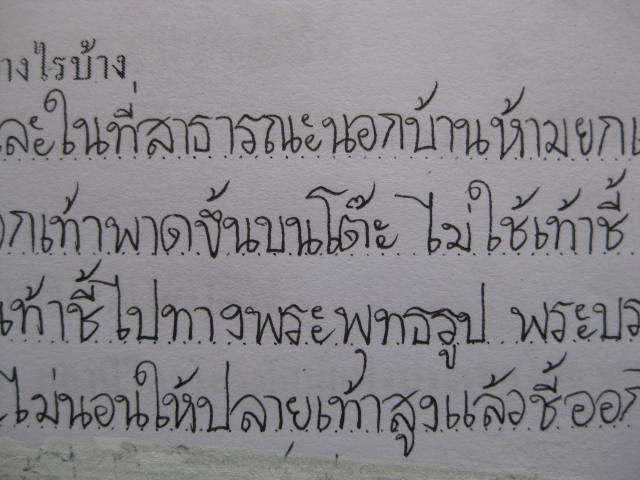 างไรบ้าง
ละในที่สาธารณะนอกบ้านห้ามยก
กเท้าพาดขึ้นบนโต๊ะ ไม่ใช้เท้าชี้
เท้าชี้ไปทางพระพุทธรูป พระบร
ะไม่นอนให้ปลายเท้าสูงแล้วชี้ออก